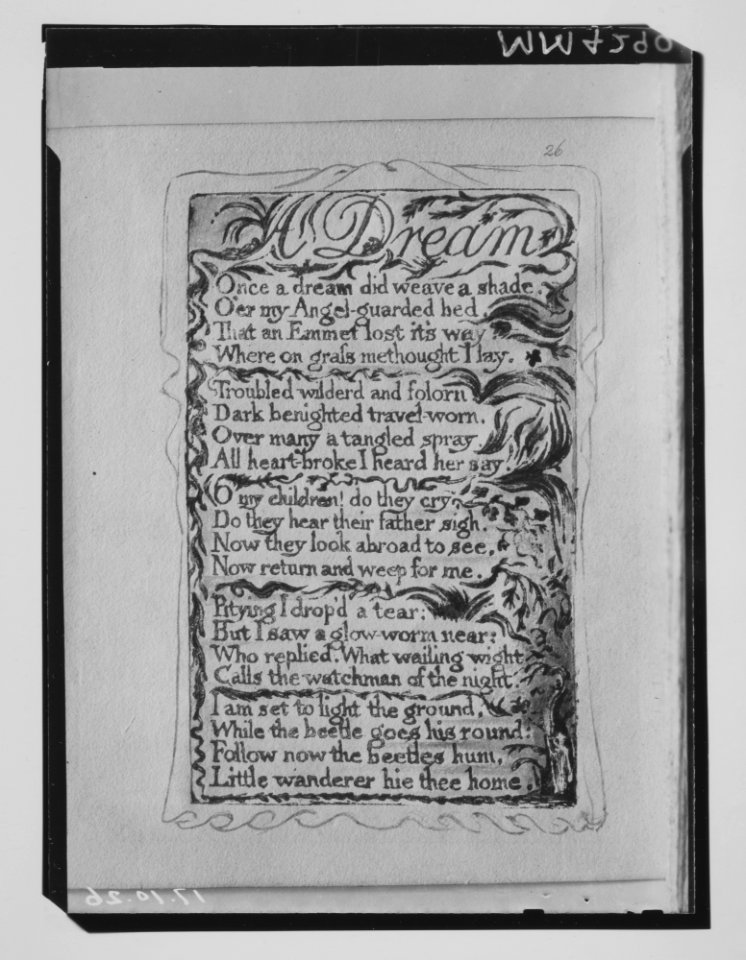 MM4290
26
A Dream
Once a dream did weave a shade.
O'er my Angel-guarded bed,
That an Emmet lost it's way
Where on grass methought I lay.
Troubled wilderd and folorn
Dark benighted travel-worn,
Over many a tangled spray
All heart-broke I heard her say
O my children! do they cry
Do they hear their father sigh.
Now they look abroad to see,
Now return and weep for me.
Pitying I drop'd a tear:
But I saw a glow-worm near:
Who replied. What wailing wight
Calls the watchman of the night.
I am set to light the ground,
While the beetle goes his round:
Follow now the beetles hum,
Little wanderer hie thee home.
17.10.26